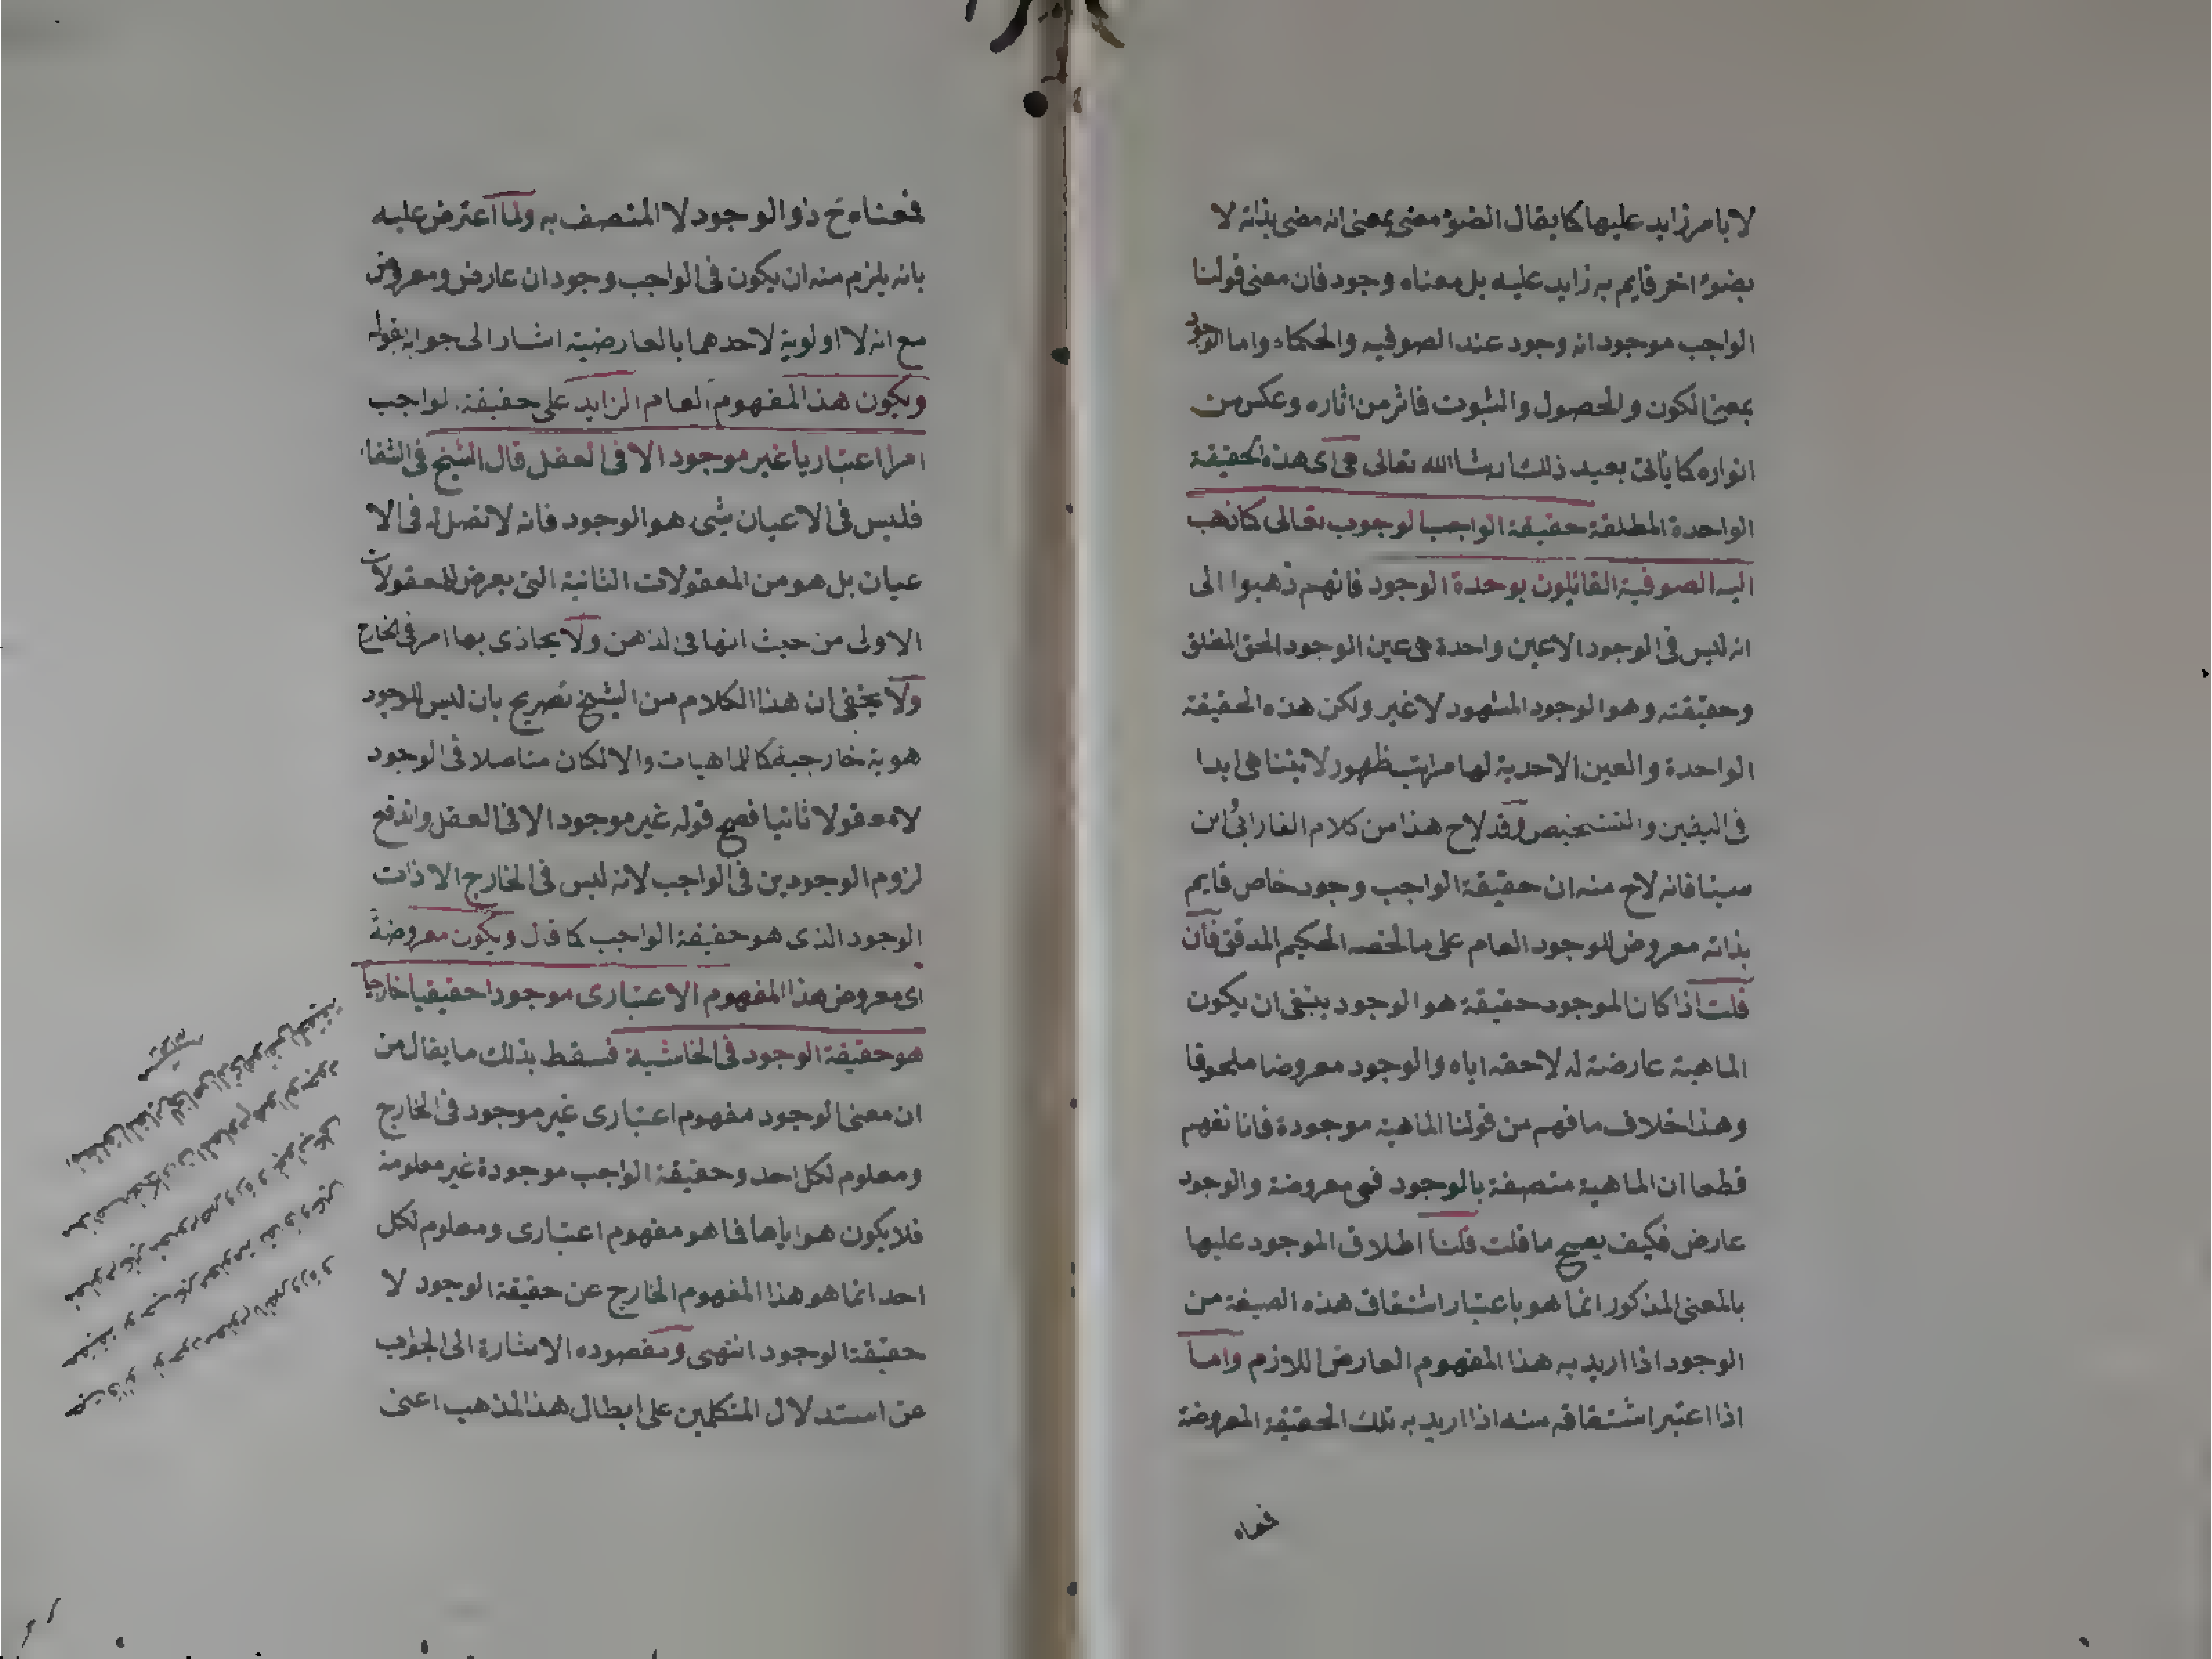 لا بامر زايد عليها كما يقال الضوء مضى بمعنى انه مضى بذاته لا
بضوء اخر قايم به زايد عليه بل معناه وجود فان معنى قولنا
الواجب موجود انه وجود عند الصوفيه والحكماء واما الوجود
بمعنى الكون والحصول والثبوت فاثر من اثاره وعكس من
انواره كما ياتى بعيد ذلك ان شا الله تعالى هى اى هذه الحقيقة
الواحدة المطلقة حقيقة الواجب الوجوب تعالى كما ذهب
اليه الصوفية القائلون بوحدة الوجود فانهم ذهبوا الى
انه ليس فى الوجود الا عين واحدة هى عين الوجود الحق المطلق
وحقيقته وهو الوجود المشهود لا غير ولكن هذه الحقيقة
الواحدة والعين الاحدية لها مراتب ظهور لا يتناهى ابدا
فى اليقين والتشخيص وقد لاح هذا من كلام الفارابى وابن
سينا فانه لاح منه ان حقيقة الواجب وجود خاص قايم
بذاته معروض للوجود العام على ما لخصه الحكيم المدقق فان
قلت اذا كان الموجود حقيقة هو الوجود ينبغى ان يكون
الماهية عارضة له لاحقه اياه والوجود معروضا ملحوقا
وهذا خلاف ما فهم من قولنا الماهية موجودة فانا نفهم
قطعا ان الماهية متصفة بالوجود فهى معروضة والوجود
عارض فكيف يصح ما قلت قلنا اطلاق الموجود عليها
بالمعنى المذكور انما هو باعتبار اشتقاق هذه الصيغة من
الوجود اذا اريد به هذا المفهوم العارض اللازم واما
اذا اعتبر اشتقاقه منه اذا اريد به تلك الحقيقة المعروضة
فمعناه
فمعناه ح ذو الوجود لا المتصف به ولما اعترض عليه
بانه يلزم منه ان يكون فى الواجب وجودان عارض ومعروض
مع انه لا اولوية لاحدهما بالعارضية اشار الى جوابه بقوله
ويكون هذا المفهوم العام الزايد على حقيقة الواجب
امرا اعتباريا غير موجود الا فى العقل قال الشيخ فى الشفا
فليس فى الاعيان شى هو الوجود فانه لا تصل له فى الا
عيان بل هو من المعقولات الثانية التى يعرض للمعقولات
الاولى من حيث انها فى الذهن ولا يحاذى بها امر فى الخارج
ولا يخفى ان هذا الكلام من الشيخ تصريح بان ليس للوجود
هوية خارجية كالماهيات والا لكان متاصلا فى الوجود
لا معقولا ثانيا فصح قوله غير موجود الا فى العقل واندفع
لزوم الوجودين فى الواجب لانه ليس فى الخارج الا ذات
الوجود الذى هو حقيقة الواجب كما قال ويكون معروضة
اى معروض هذا المفهوم الاعتبارى موجودا حقيقيا خارجيا
هو حقيقة الوجود فى الحاشية فسقط بذلك ما يقال من
ان معنى الوجود مفهوم اعتبارى غير موجود فى الخارج
ومعلوم لكل احد وحقيقة الواجب موجودة غير معلومة
فلا يكون هو اياها فما هو مفهوم اعتبارى ومعلوم لكل
احد انما هو هذا المفهوم الخارج عن حقيقة الوجود لا
حقيقة الوجود انتهى ومقصوده الاشارة الى الجواب
عن استدلال المتكلمين على ابطال هذا المذهب اعنى